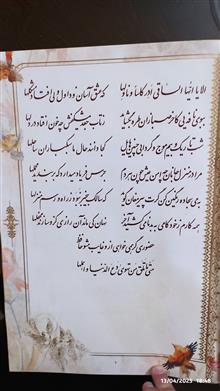 الا یا ایها الساقی ادر کاسا و ناولها که عشق آسان نمود اول ولی افتاد مشکلها
ببوی نافه‌ای کاخر صبا زان طره بگشاید ز تاب جعد مشکینش چه خون افتاد در دلها
شب تاریک و بیم موج و گردابی چنین هایل کجا دانند حال ما سبکباران ساحلها
مرا در منزل جانان چه امن عیش چون هر دم جرس فریاد میدارد که بربندید محملها
بمی سجاده رنگین کن گرت پیر مغان گوید که سالک بیخبر نبود ز راه و رسم منزلها
همه کارم ز خودکامی به بدنامی کشید آخر نهان کی ماند آن رازی کزو سازند محفلها
حضوری گر همی خواهی ازو غایب مشو حافظ
متی ما تلق من تهوی دع الدنیا و اهملها
13/04/2025 48:46